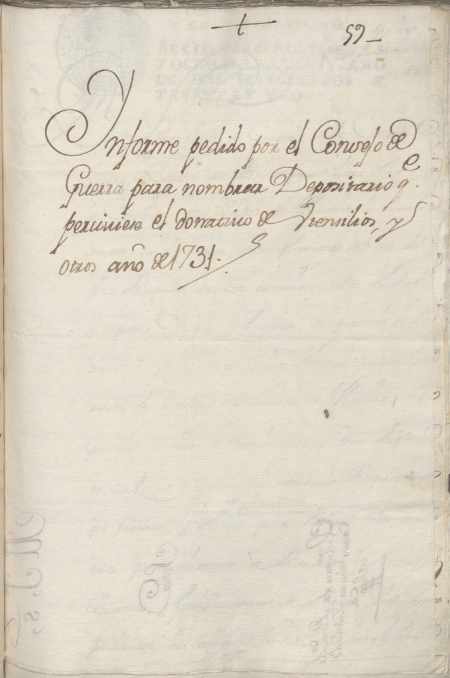 59
Ynforme pedido por el Consejo de
Guerra para nombrar Depositario q.e
perciviese el donativo de Utensilios, y
otros año de 1731.